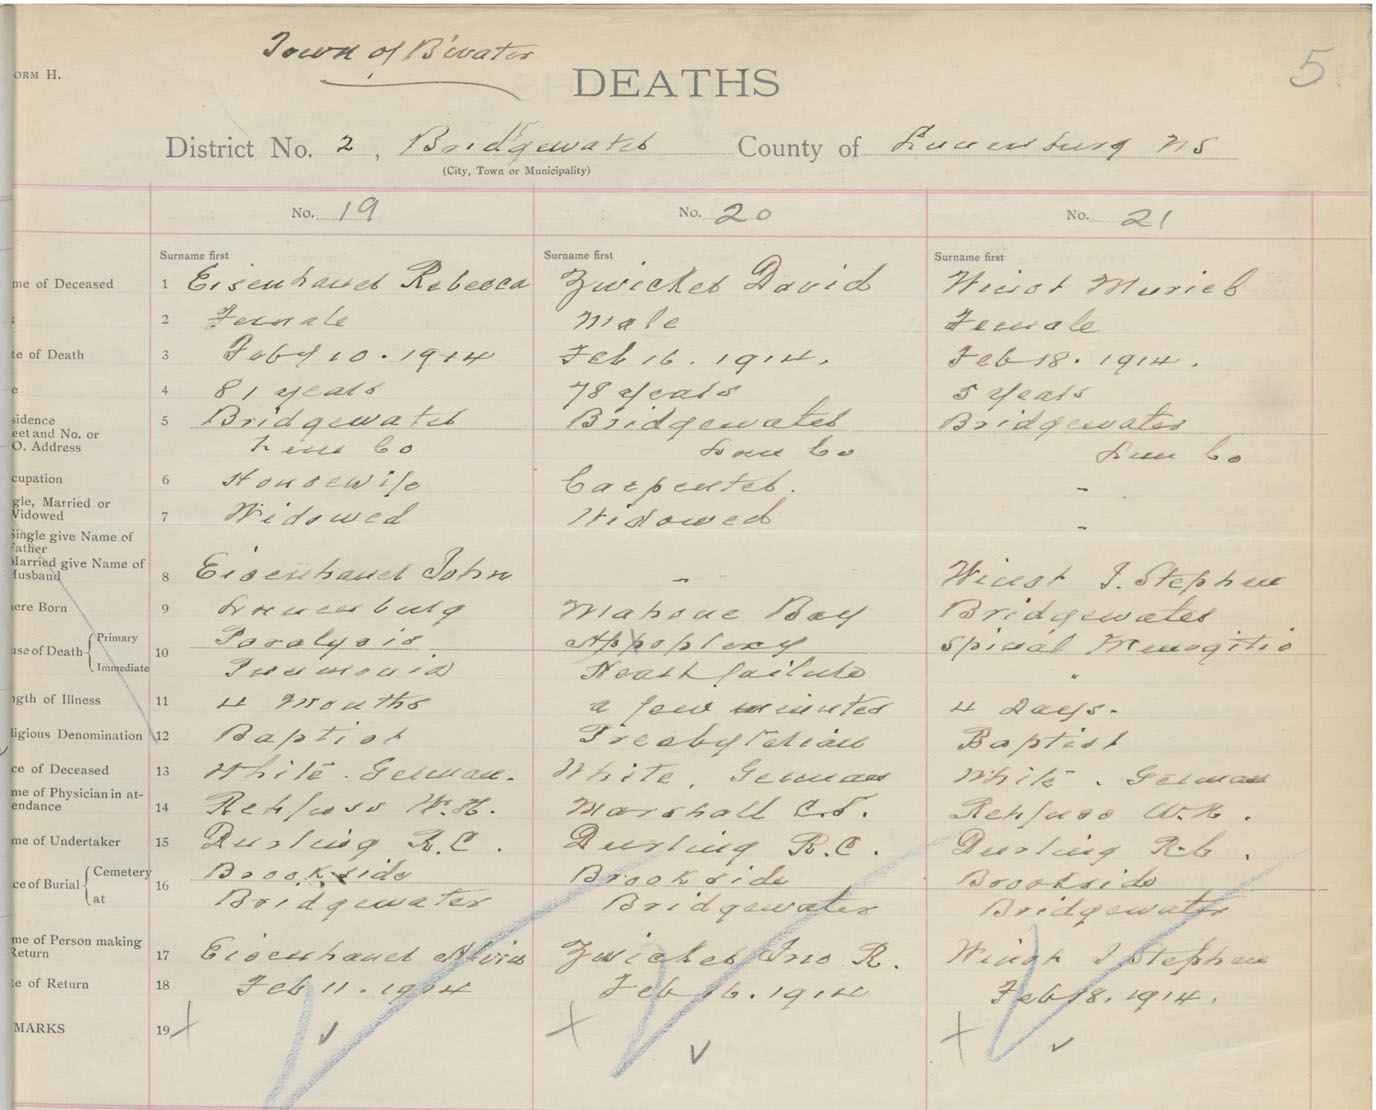 Town of B'water
ORM H.
DEATHS
5
District No. 2, Bridgewater County of Lunenburg NS
(City, Town or Municipality)
No. 19 No. 20 No. 21
Surname first Surname first Surname first
me of Deceased 1 Eisenhauer Rebecca Zwicker David Winot Muriel
2 Female Male Female
te of Death 3 Feby 10. 1914 Feb 16. 1914. Feb 18. 1914.
e 4 81 years 78 years 5 years
sidence 5 Bridgewater Bridgewater Bridgewater
eet and No. or
O. Address Lun Co Lun Co Lun Co
cupation 6 Housewife Carpenter. -
gle, Married or
Widowed 7 Widowed Widowed -
Single give Name of
Father
Married give Name of
Husband 8 Eisenhauer John - Winot J. Stephen
ere Born 9 Lunenburg Mahone Bay Bridgewater
use of Death 10 Primary Paralysis Appoplexy Spinal Menogitis
Immediate Pneumonia Heart failure "
ngth of Illness 11 4 Months a few minutes 4 Days.
ligious Denomination 12 Baptist Presbyterian Baptist
ce of Deceased 13 White. German. White, German White. German
me of Physician in at-
endance 14 Rehfuss W.H. Marshall C.S. Rehfuss W.H.
me of Undertaker 15 Durling R.C. Durling R.C. Durling R.C.
ce of Burial 16 Cemetery Brookside Brookside Brookside
at Bridgewater Bridgewater Bridgewater
me of Person making
Return 17 Eisenhauer Alvin Zwicker Jno R. Winot J Stephen
te of Return 18 Feb 11. 1914 Feb 16. 1914 Feb 18. 1914.
MARKS 19